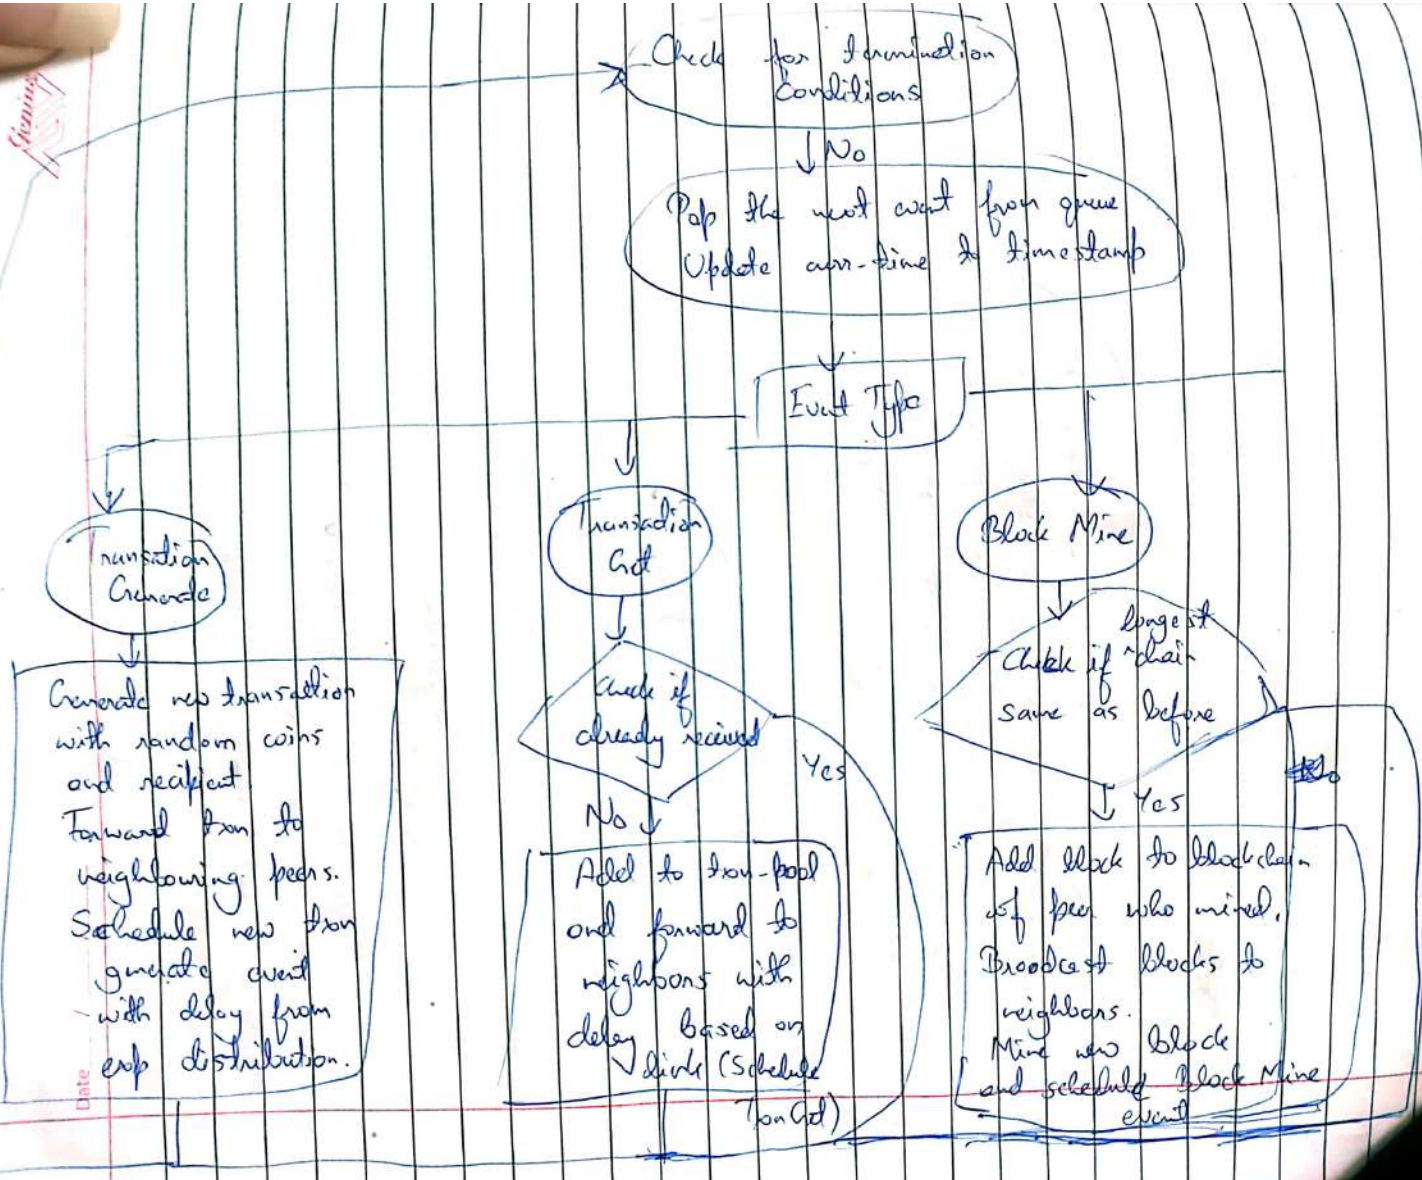 Check for termination
Conditions
No
Pop the next event from queue
Update curr-time to timestamp
Event Type
Transation
Generate
Transaction
Get
Block Mine
Generate new transaction
with random coins
and recipient
Forward txn to
neighbouring peers.
Schedule new txn
generate event
with delay from
exp distribution.
Check if
already received
Yes
No
Add to txn-pool
and forward to
neighbors with
delay based on
link (Schedule
TxnGet)
longest
Check if ^chain
same as before
Yes
Add block to blockchain
of peer who mined.
Broadcast blocks to
neighbors.
Mine new block
and schedule Block Mine
event
Date